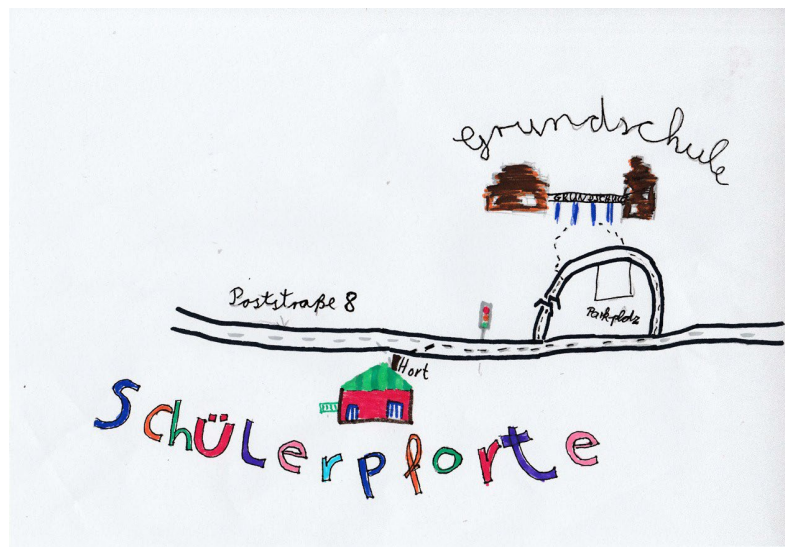 Grundschule
GRUNDSCHULE
Poststraße 8
Parkplatz
Hort
Schülerpforte